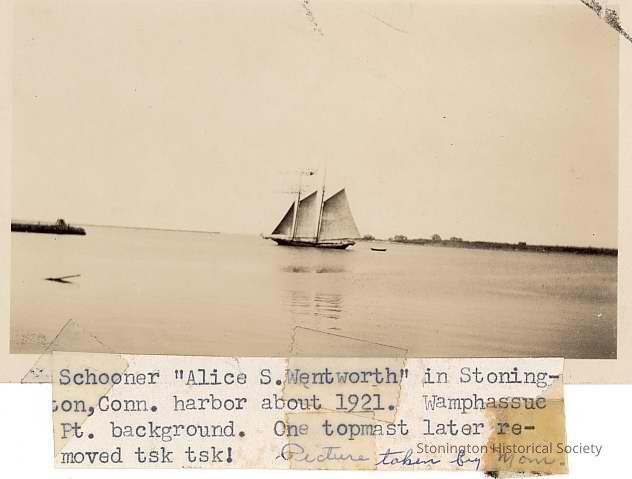 Schooner "Alice S. Wentworth" in Stoning-
ton,Conn. harbor about 1921. Wamphassuc
Pt. background. One topmast later re-
moved tsk tsk! Picture taken by Mom.
Stonington Historical Society